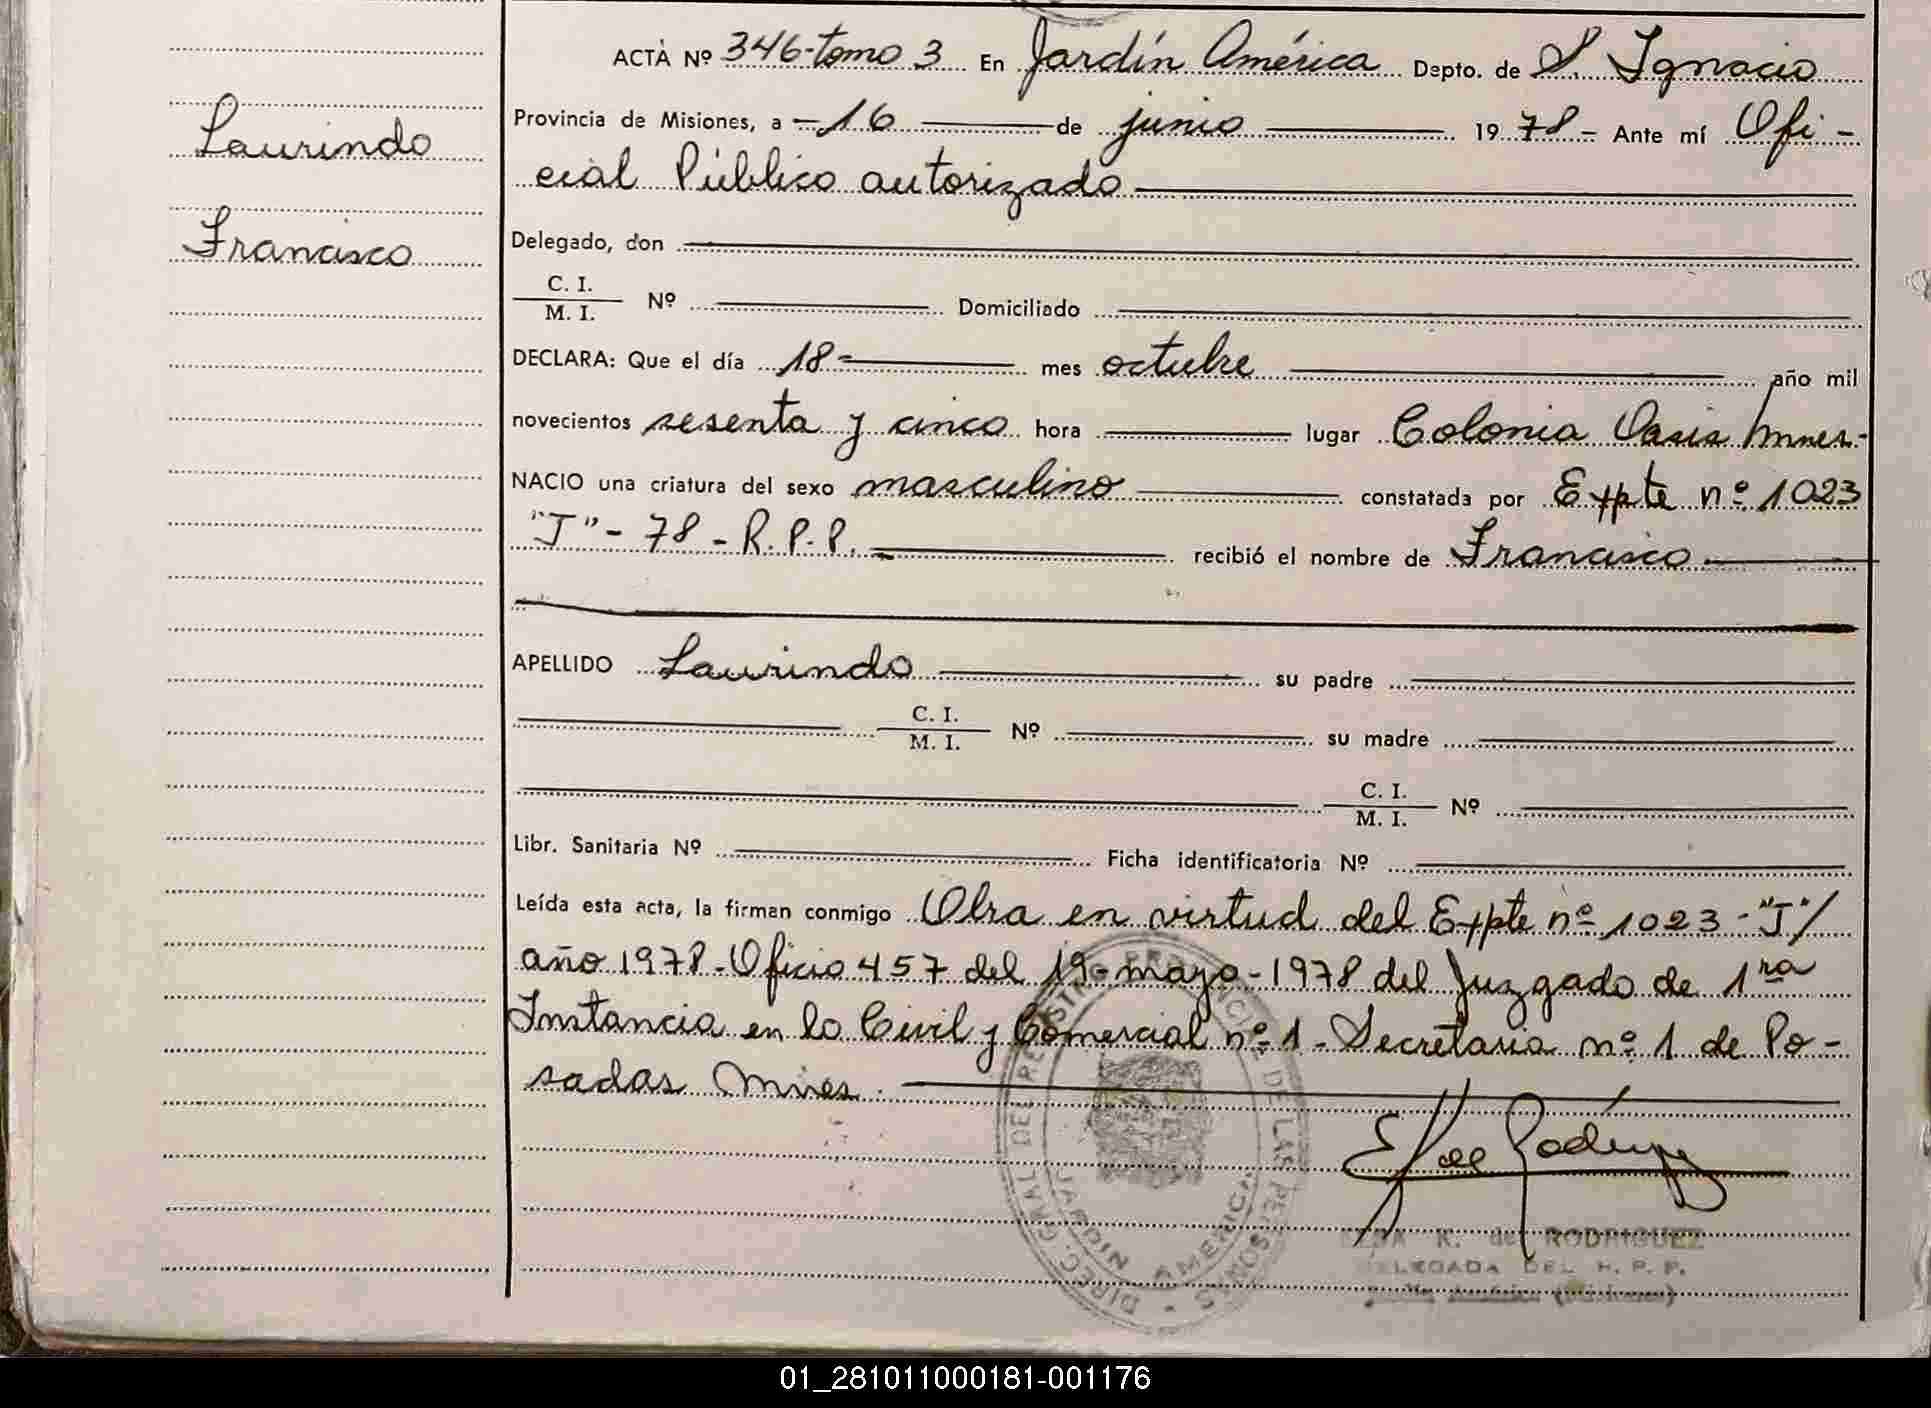 ACTA Nº 346-tomo 3 En Jardín América Depto. de S. Ignacio
Laurindo
Francisco
Provincia de Misiones, a -16 de junio 1978- Ante mí Ofi-
cial Público autorizado
Delegado, don
C. I.
M. I. Nº Domiciliado
DECLARA: Que el día 18- mes octubre año mil
novecientos sesenta y cinco hora lugar Colonia Oasis Mnes.-
NACIO una criatura del sexo masculino constatada por Expte nº 1023
"J"-78-R.P.P. recibió el nombre de Francisco
APELLIDO Laurindo su padre
C. I.
M. I. Nº su madre
C. I.
M. I. Nº
Libr. Sanitaria Nº Ficha identificatoria Nº
Leída esta acta, la firman conmigo Obra en virtud del Expte nº 1023-"J"/
año 1978-Oficio 457 del 19-mayo-1978 del Juzgado de 1ra
Instancia en lo Civil y Comercial nº 1-Secretaria nº 1 de Po-
sadas Mnes.
DIREC. GRAL DEL REGISTRO PROVINCIAL DE LAS PERSONAS
JARDIN AMERICA
K. de RODRIGUEZ
DELEGADA DEL R. P. P.
(Misiones)
01_281011000181-001176